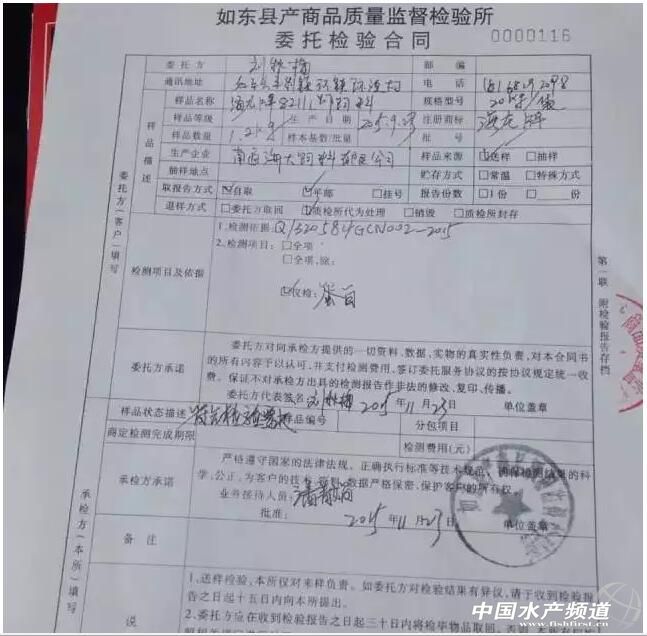 如东县产商品质量监督检验所
委托检验合同 0000116
委托方 部编
通讯地址 电话
样品名称 规格型号
样品等级 生产日期 2015.9.23 注册商标 海龙牌
样品数量 样本基数/批量 批号
生产企业 样品来源 ☑送样 □抽样
抽样地点 贮存方式 □常温 □特殊方式
取报告方式 ☑自取 ☑平邮 □挂号 报告份数 □1份 □ 份
退样方式 □委托方取回 ☑质检所代为处理 □销毁 □质检所封存
样品描述
委托方(客户)填写
检测项目及依据
1.检测依据:Q/320584GCN002-2015
2.检测项目:□全项
□全项,除:
☑仅检:蛋白
第一联 附检验报告存档
委托方承诺
委托方对向承检方提供的一切资料、数据、实物的真实性负责,对本合同书
的所有内容予以认可,并支付检测费用,签订委托服务协议的按协议规定统一收
费。保证不对承检方出具的检测报告作非法的修改、复印、传播。
委托方代表签名 2015年11月23日 单位盖章
样品状态描述 符合检验要求 样品编号 分包项目
商定检测完成期限 检测费用(元)
承检方承诺
严格遵守国家的法律法规、正确执行标准等技术规范、确保检测结果的科
学,公正,为客户的技术、资料、数据严格保密,保护客户的所有权。
业务接待人员:
批准: 2015年11月23日 单位盖章
备注
承检方(本所)填写
说
1.送样检验,本所仅对来样负责。如委托方对检验结果有异议,请于收到检验报
告之日起十五日内向本所提出。
2.委托方应在收到检验报告之日起三十日内将检毕物品取回。
中国水产频道
www.fishfirst.cn